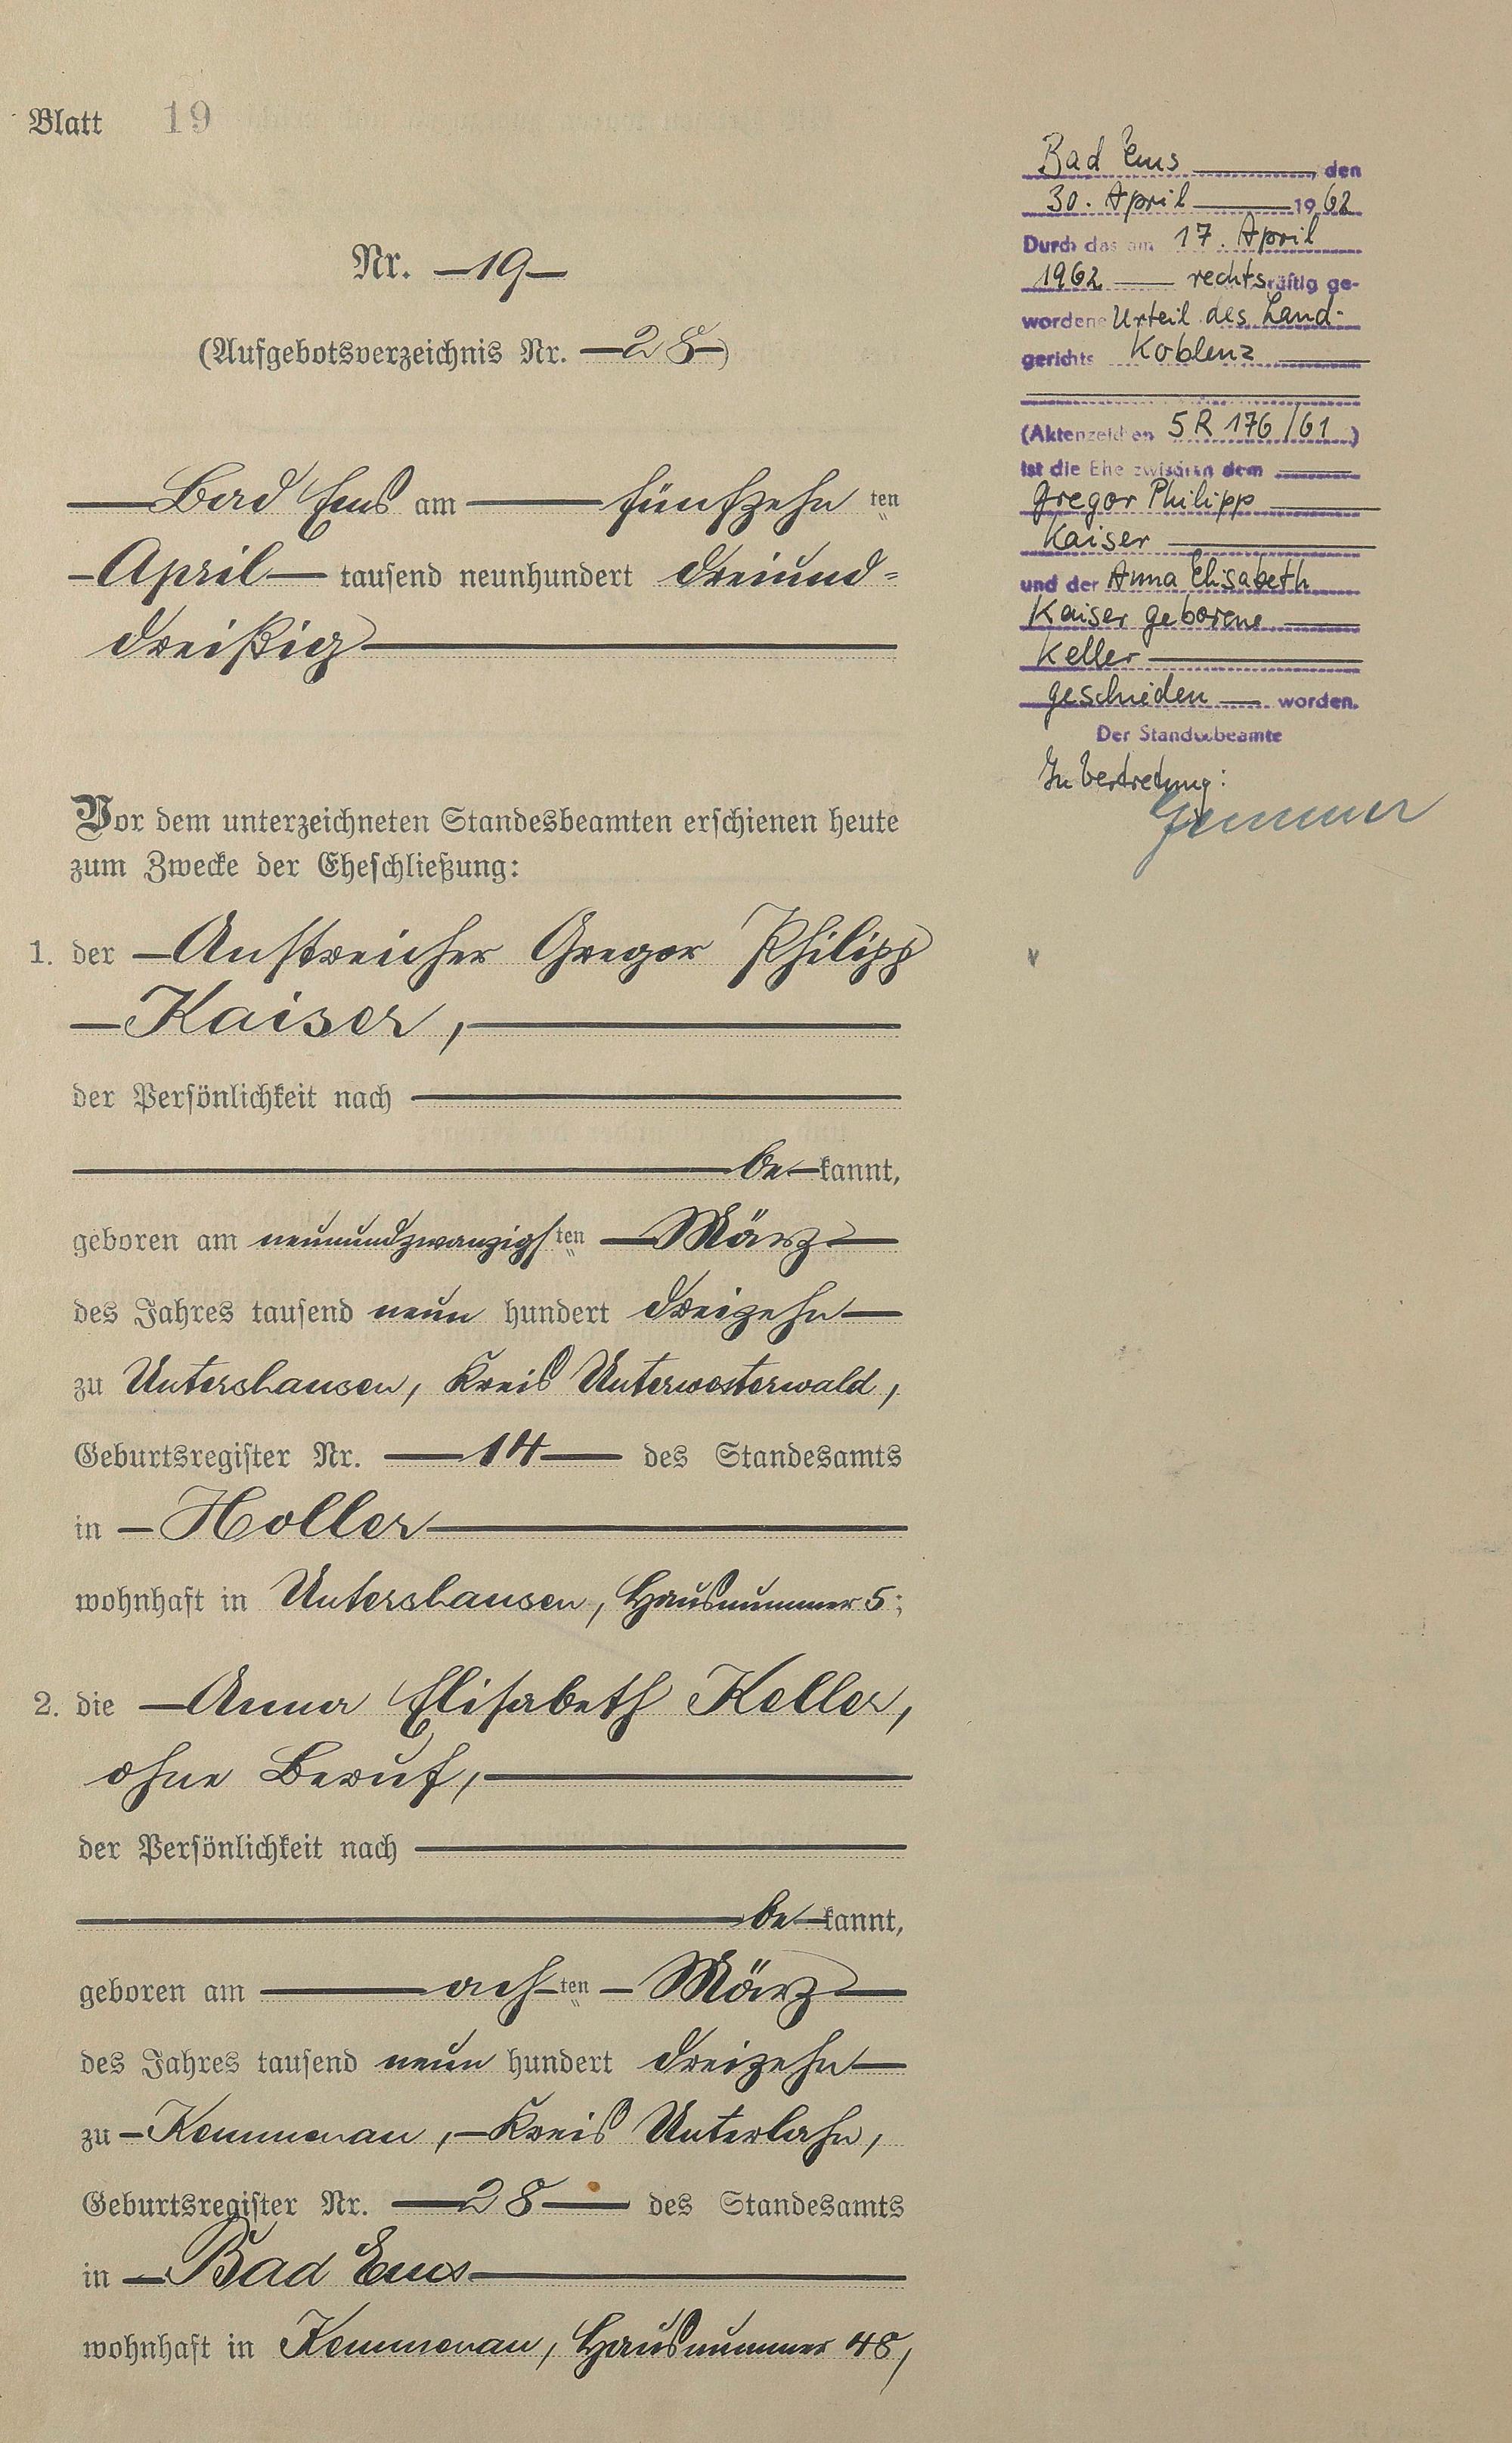 Blatt 19
Nr. —19—
(Aufgebotsverzeichnis Nr. —28—)
Bad Ems am fünfzehn ten
April tausend neunhundert dreiund=
dreißig
Vor dem unterzeichneten Standesbeamten erschienen heute
zum Zwecke der Eheschließung:
1. der Anstreicher Gregor Philipp
Kaiser,
der Persönlichkeit nach
be kannt,
geboren am neunundzwanzigsten März
des Jahres tausend neun hundert dreizehn
zu Untershausen, Kreis Unterwesterwald,
Geburtsregister Nr. —14— des Standesamts
in Holler
wohnhaft in Untershausen, Hausnummer 5;
2. die Anna Elisabeth Keller,
ohne Beruf,
der Persönlichkeit nach
be kannt,
geboren am ach ten März
des Jahres tausend neun hundert dreizehn
zu Kemmenau, Kreis Unterlahn,
Geburtsregister Nr. —28— des Standesamts
in Bad Ems
wohnhaft in Kemmenau, Hausnummer 48,
Bad Ems, den
30. April 1962
Durch das am 17. April
1962 rechtskräftig ge-
wordene Urteil des Land-
gerichts Koblenz
(Aktenzeichen 5 R 176/61)
ist die Ehe zwischen dem
Gregor Philipp
Kaiser
und der Anna Elisabeth
Kaiser geborene
Keller
geschieden worden.
Der Standesbeamte
In Vertretung: